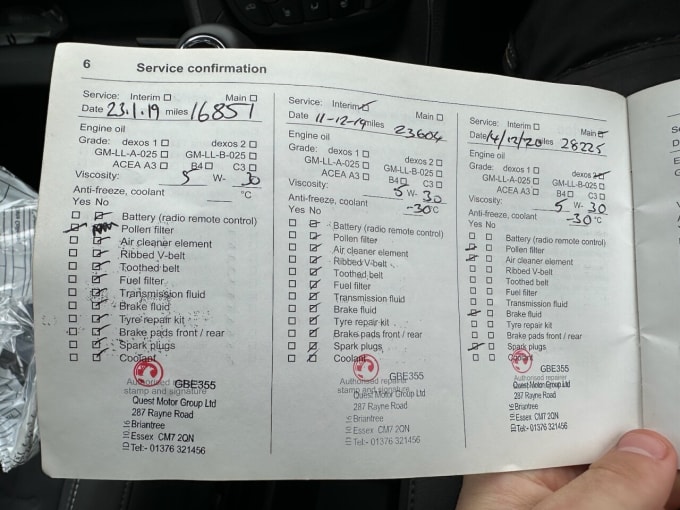 6 Service confirmation
Service: Interim ☐ Main ☐
Date 23.1.19 miles 16851
Engine oil
Grade: dexos 1 ☐ dexos 2 ☐
GM-LL-A-025 ☐ GM-LL-B-025 ☐
ACEA A3 ☐ B4 ☐ C3 ☐
Viscosity: 5 W- 30
Anti-freeze, coolant °C
Yes No
Battery (radio remote control)
Pollen filter
Air cleaner element
Ribbed V-belt
Toothed belt
Fuel filter
Transmission fluid
Brake fluid
Tyre repair kit
Brake pads front / rear
Spark plugs
Coolant
GBE355
Authorised repairer
stamp and signature
Quest Motor Group Ltd
287 Rayne Road
Briantree
Essex CM7 2QN
Tel:- 01376 321456
Service: Interim ☑ Main ☐
Date 11-12-19 miles 23604
Engine oil
Grade: dexos 1 ☐ dexos 2 ☐
GM-LL-A-025 ☐ GM-LL-B-025 ☐
ACEA A3 ☐ B4 ☐ C3 ☐
Viscosity: 5 W- 30
Anti-freeze, coolant -30°C
Yes No
Battery (radio remote control)
Pollen filter
Air cleaner element
Ribbed V-belt
Toothed belt
Fuel filter
Transmission fluid
Brake fluid
Tyre repair kit
Brake pads front / rear
Spark plugs
Coolant
GBE355
Authorised repairer
stamp and signature
Quest Motor Group Ltd
287 Rayne Road
Briantree
Essex CM7 2QN
Tel:- 01376 321456
Service: Interim ☐ Main ☑
Date 14/12/20 miles 28225
Engine oil
Grade: dexos 1 ☐ dexos 2 ☑
GM-LL-A-025 ☐ GM-LL-B-025 ☐
ACEA A3 ☐ B4 ☐ C3 ☐
Viscosity: 5 W- 30
Anti-freeze, coolant -30°C
Yes No
Battery (radio remote control)
Pollen filter
Air cleaner element
Ribbed V-belt
Toothed belt
Fuel filter
Transmission fluid
Brake fluid
Tyre repair kit
Brake pads front / rear
Spark plugs
Coolant
GBE355
Authorised repairer
Quest Motor Group Ltd
287 Rayne Road
Briantree
Essex CM7 2QN
Tel:- 01376 321456